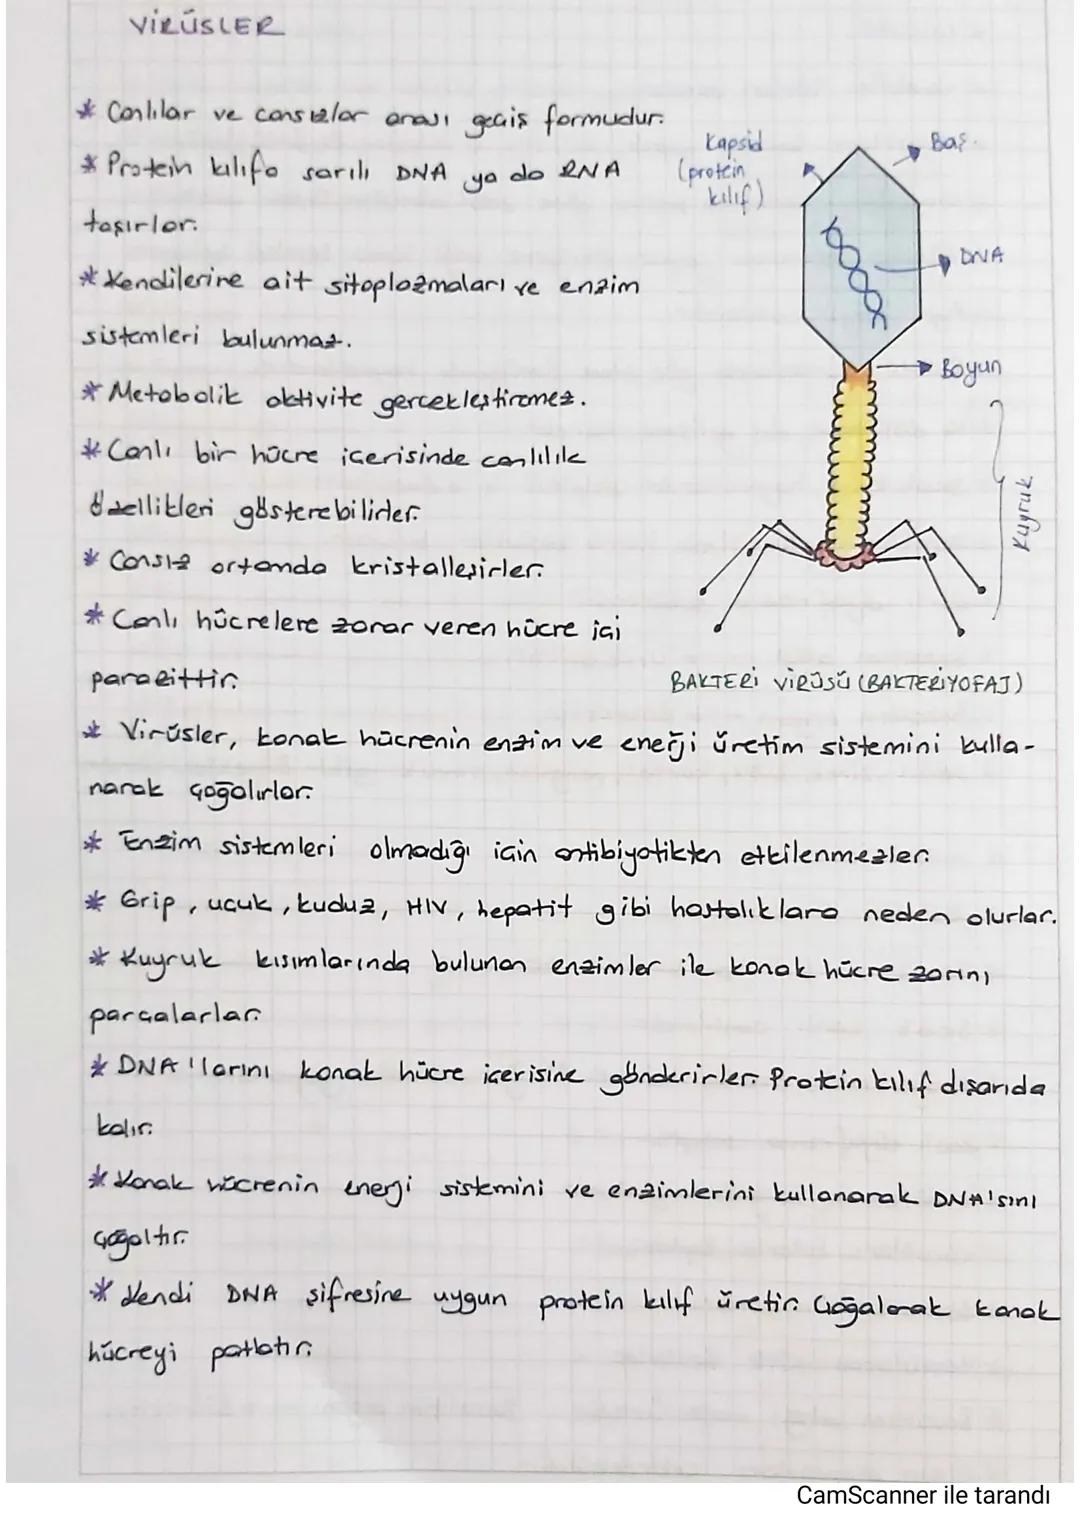 VİRÜSLER
* Canlılar ve cansızlar arası geçiş formudur.
* Protein kılıfa sarılı DNA ya da RNA
taşırlar.
* Kendilerine ait sitoplazmaları ve enzim
sistemleri bulunmaz.
* Metabolik aktivite gerçekleştiremez.
* Canlı bir hücre içerisinde canlılık
özellikleri gösterebilirler.
* Cansız ortamda kristalleşirler.
* Canlı hücrelere zarar veren hücre içi
parazittir.
Kapsid
(protein
kılıf)
Baş
DNA
Boyun
Kuyruk
BAKTERİ VİRÜSÜ (BAKTERİYOFAJ)
* Virüsler, konak hücrenin enzim ve enerji üretim sistemini kulla-
narak çoğalırlar.
* Enzim sistemleri olmadığı için antibiyotikten etkilenmezler.
* Grip, uçuk, kuduz, HIV, hepatit gibi hastalıklara neden olurlar.
* Kuyruk kısımlarında bulunan enzimler ile konak hücre zarını
parçalarlar.
* DNA'larını konak hücre içerisine gönderirler. Protein kılıf dışarıda
kalır.
* Konak hücrenin enerji sistemini ve enzimlerini kullanarak DNA'sını
çoğaltır.
* Kendi DNA şifresine uygun protein kılıf üretir. Çoğalarak konak
hücreyi patlatır.
CamScanner ile tarandı